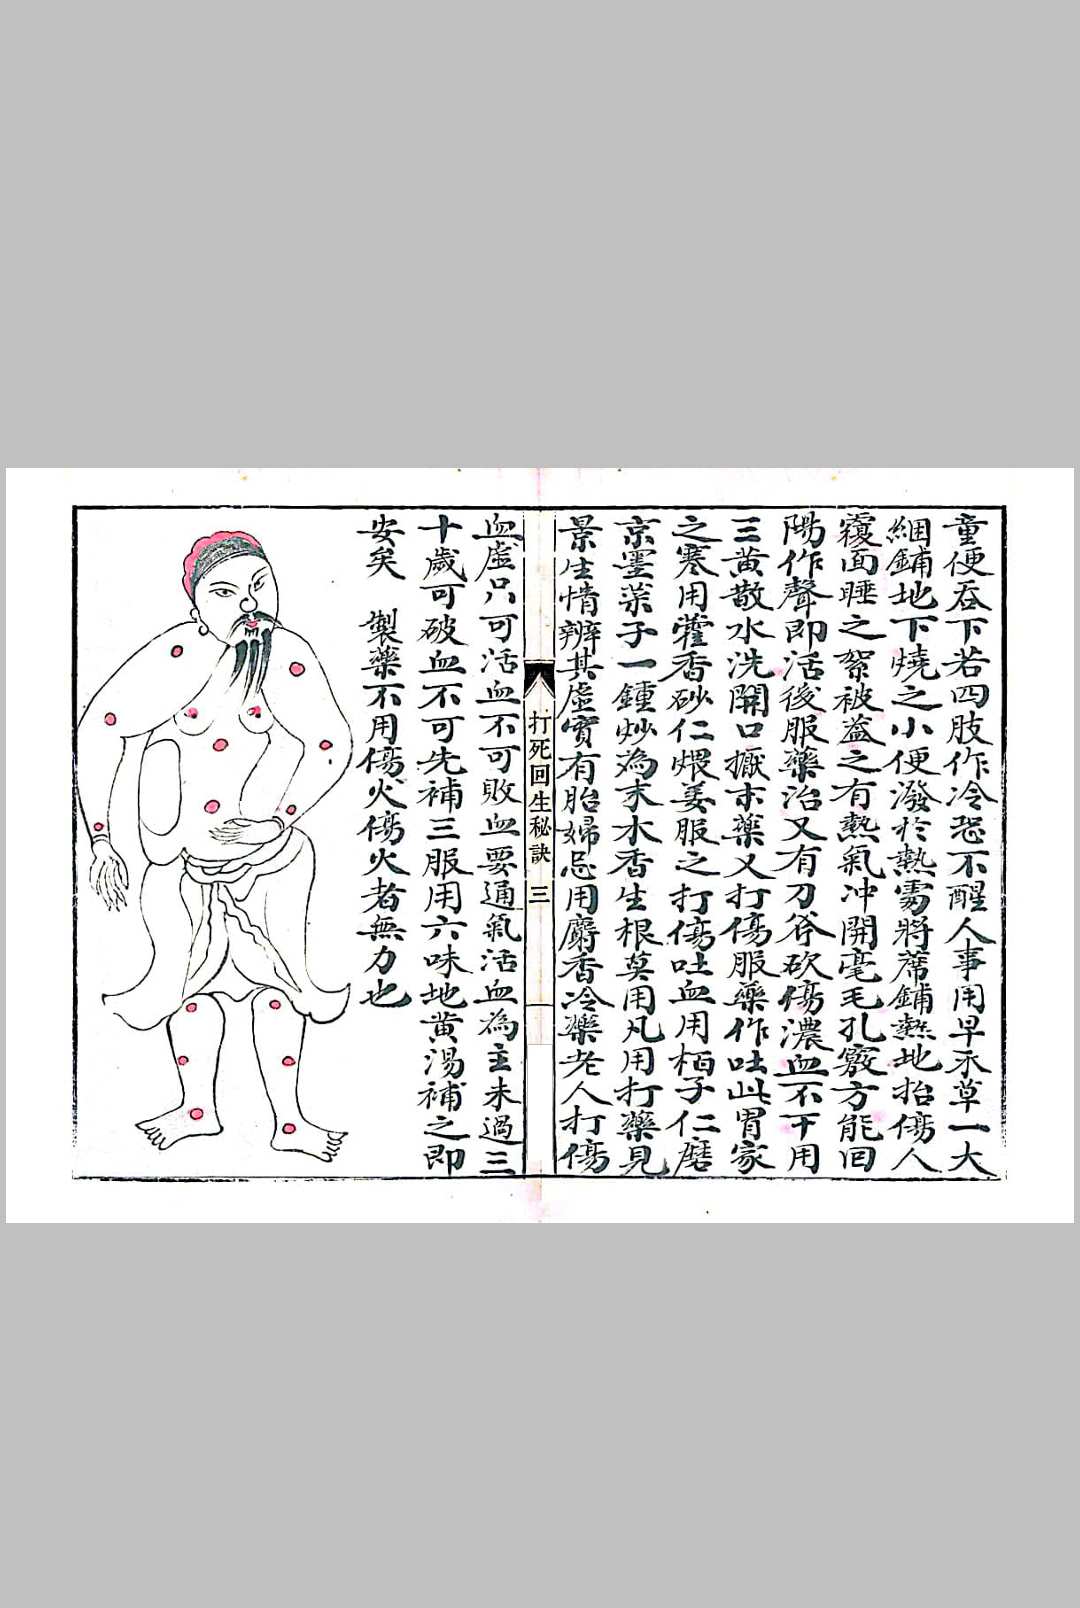 童便吞下若四肢作冷恐不醒人事用早禾草一大
綑鋪地下燒之小便潑於熱需將蓆鋪熱地抬傷人
覆面睡之絮被蓋之有熱氣冲開毫毛孔竅方能回
陽作聲即活後服藥治又有刀斧砍傷濃血不干用
三黄散水洗開口掀末藥又打傷服藥作吐此胃家
之寒用藿香砂仁煨姜服之打傷吐血用栢子仁磨
京墨菜子一鍾炒為末木香生根莫用凡用打藥見
景生情辨其虛實有胎婦忌用麝香冷藥老人打傷
打死回生秘訣 三
血虛只可活血不可敗血要通氣活血為主未過三
十歲可破血不可先補三服用六味地黄湯補之即
安矣 製藥不用傷火傷火者無力也